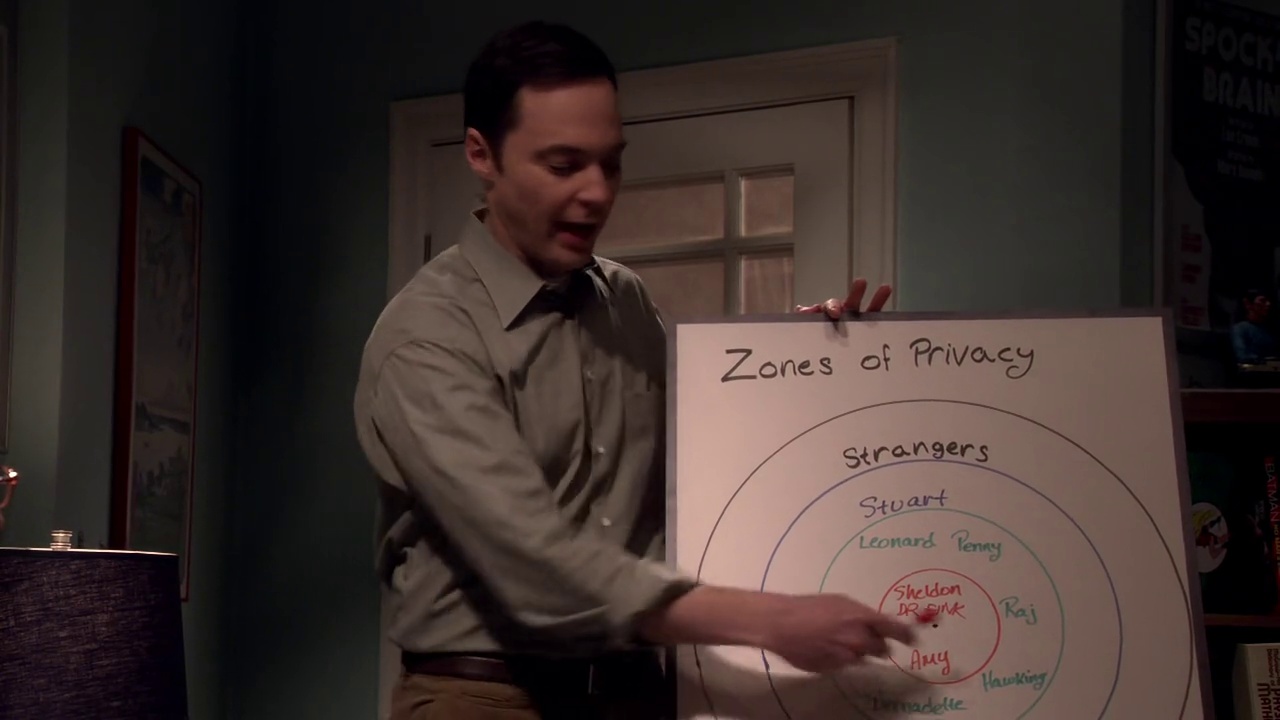 SPOCK'S
BRAIN
Zones of Privacy
Strangers
Stuart
Leonard Penny
Sheldon
DR
Raj
Amy
Hawking
Bernadette